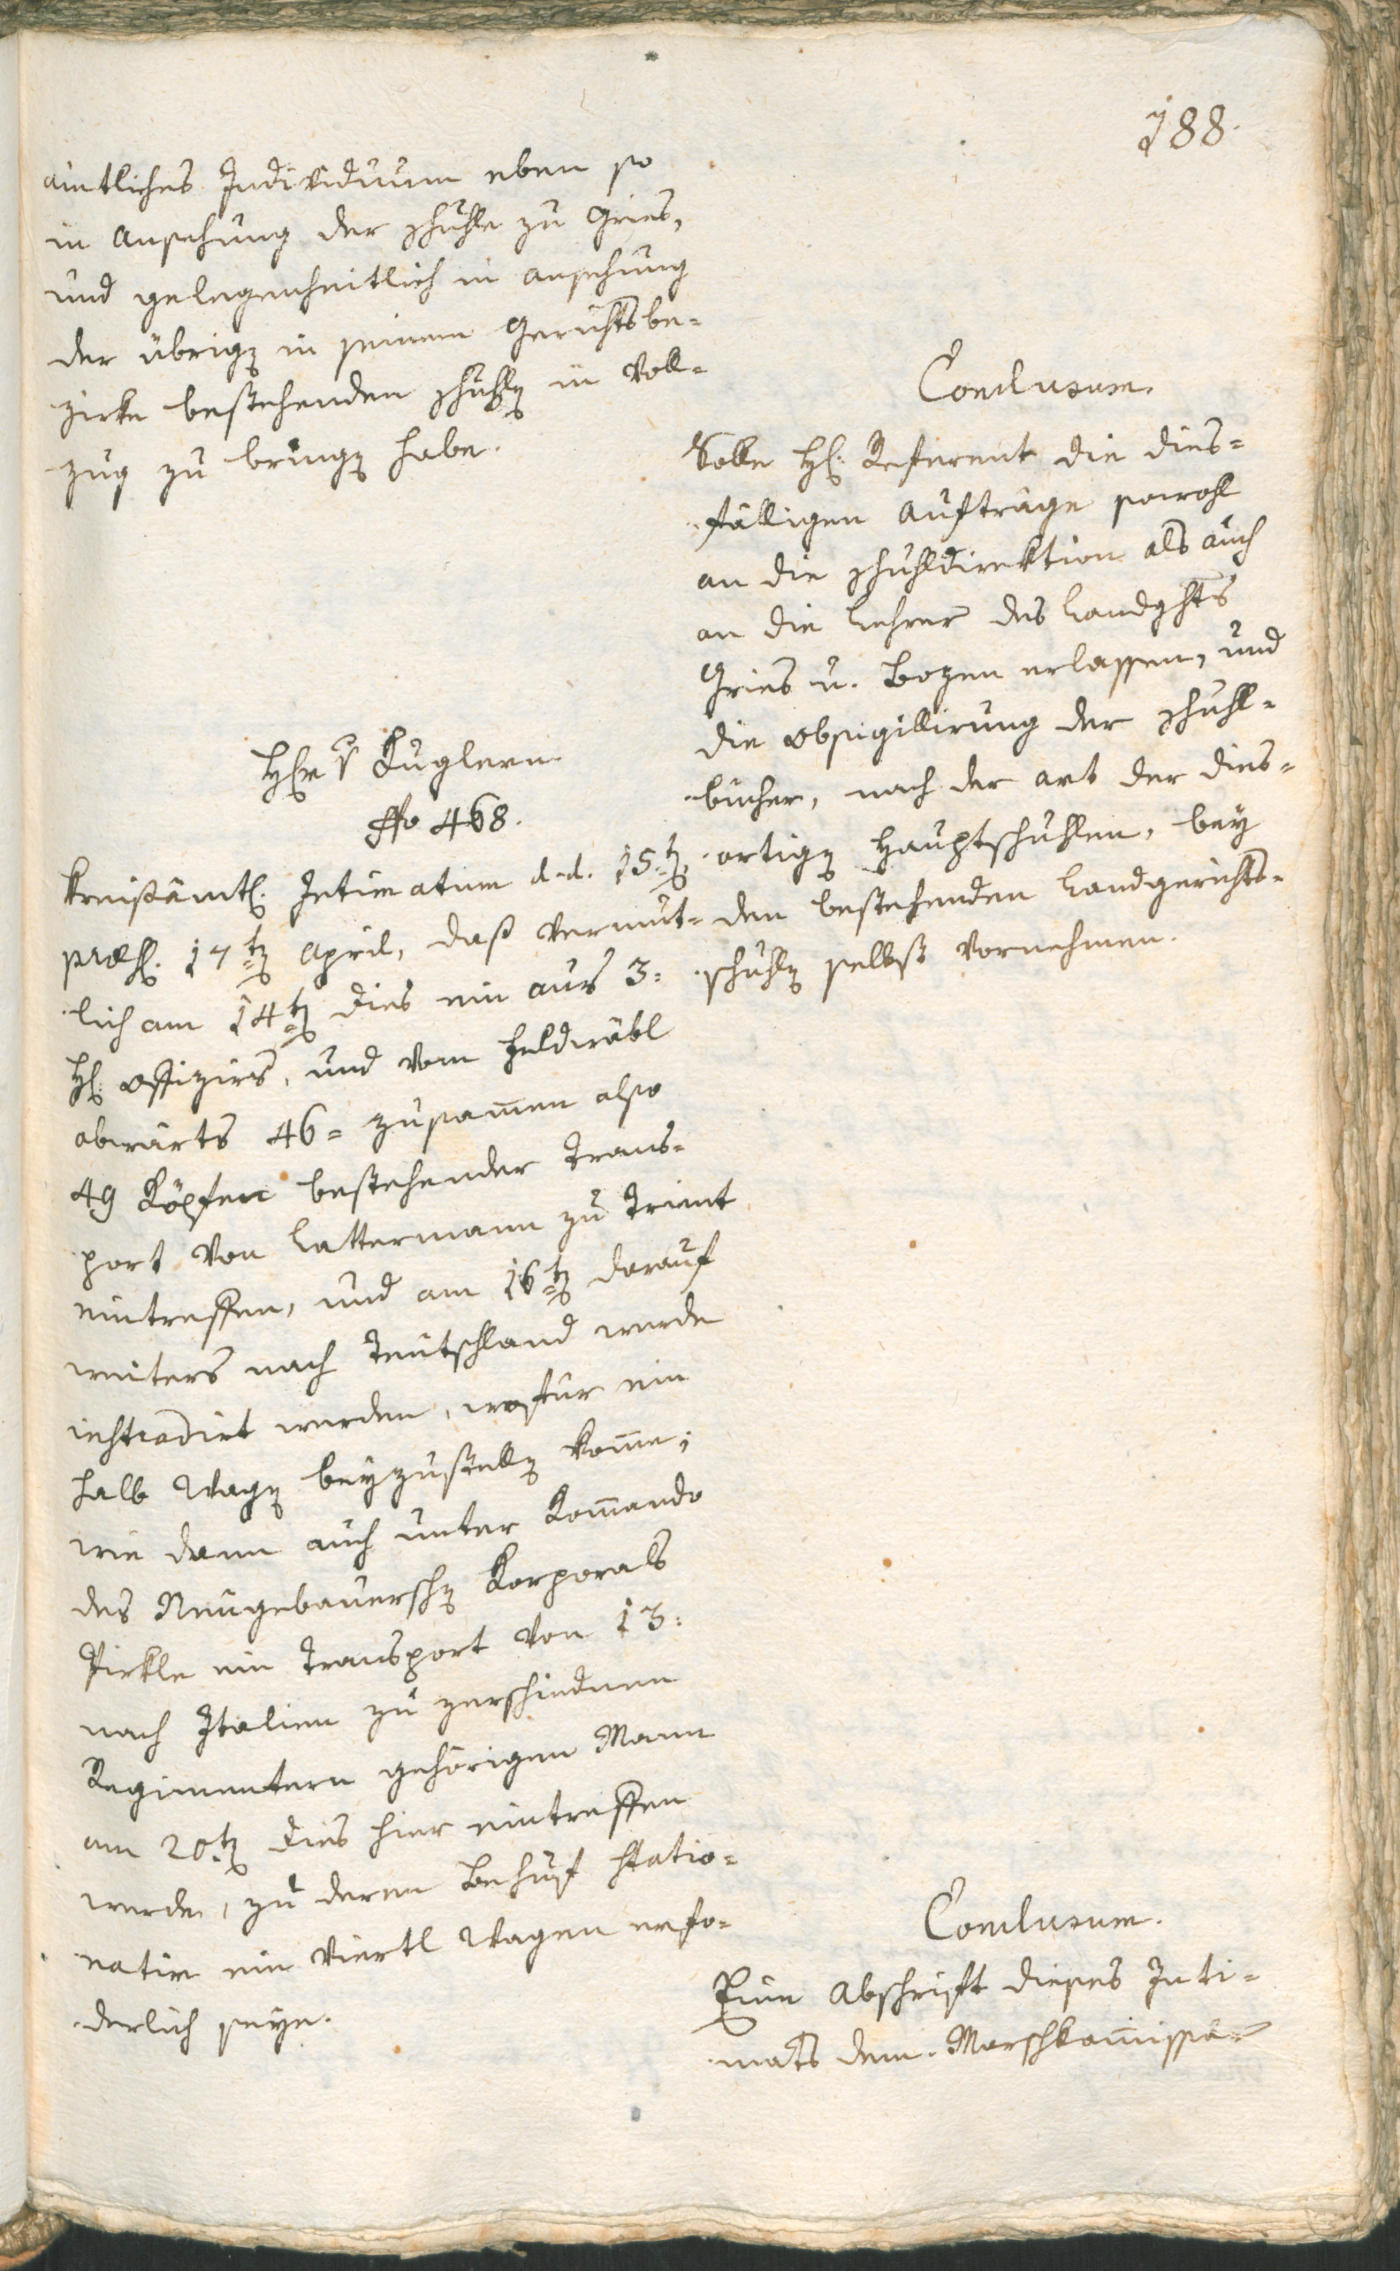 188.
amtliches Individuum eben so
in Ansehung der Schuhle zu Gries,
und gelegenheitlich in ansehung
der übrigen in seinem Gerichtsbe=
zirke bestehenden Schuhlen in Voll=
zug zu bringen habe.
Conclusum.
Solle H. Referent die dies=
fälligen Aufträge sowohl
an die Schuhldirektion als auch
an die Lehrer des Landghts
Gries u. Bozen erlassen, und
die Obsigillirung der Schuhl=
bücher, nach der art der dies=
ortigen Hauptschuhlen, bey
den bestehenden Landgerichts=
schuhlen selbst vornehmen.
Kuglern
No 468.
Kreißämtl. Intimatum d.d. 15ten
præs. 17ten April, daß vermut=
lich am 14ten dies ein aus 3:
H. Offiziers, und vom Feldwäbl
abwärts 46= zusamen also
49 Köpfen bestehender Trans=
port von Lattermann zu Trient
eintreffen, und am 16ten darauf
weiters nach Teutschland werde
instradirt werden, wofür ein
halb Wagen beyzustellen kome;
wie dann auch unter Komando
des Neugebauerschen Korporals
Pirkle ein Transport von 13:
nach Italien zu zerschiednen
Regimentern gehörigen Mann
am 20ten dies hier eintreffen
werde, zu deren Behuf statio=
natim ein Viertl Wagen erfo=
derlich seye.
Conclusum.
Eine Abschrift dieses Inti=
mats dem Marschkomissa=